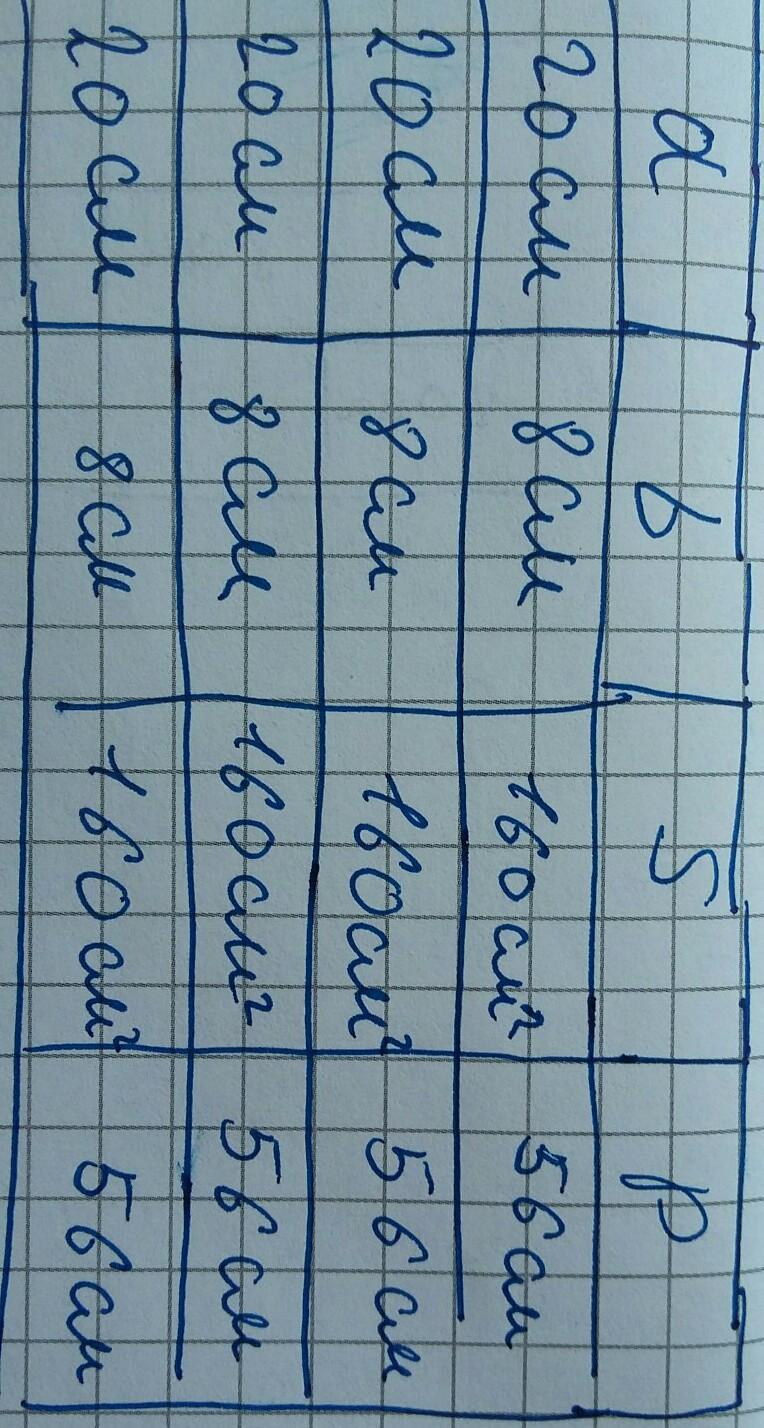 a b S P
20 см 8 см 160 см² 56 см
20 см 8 см 160 см² 56 см
20 см 8 см 160 см² 56 см
20 см 8 см 160 см² 56 см